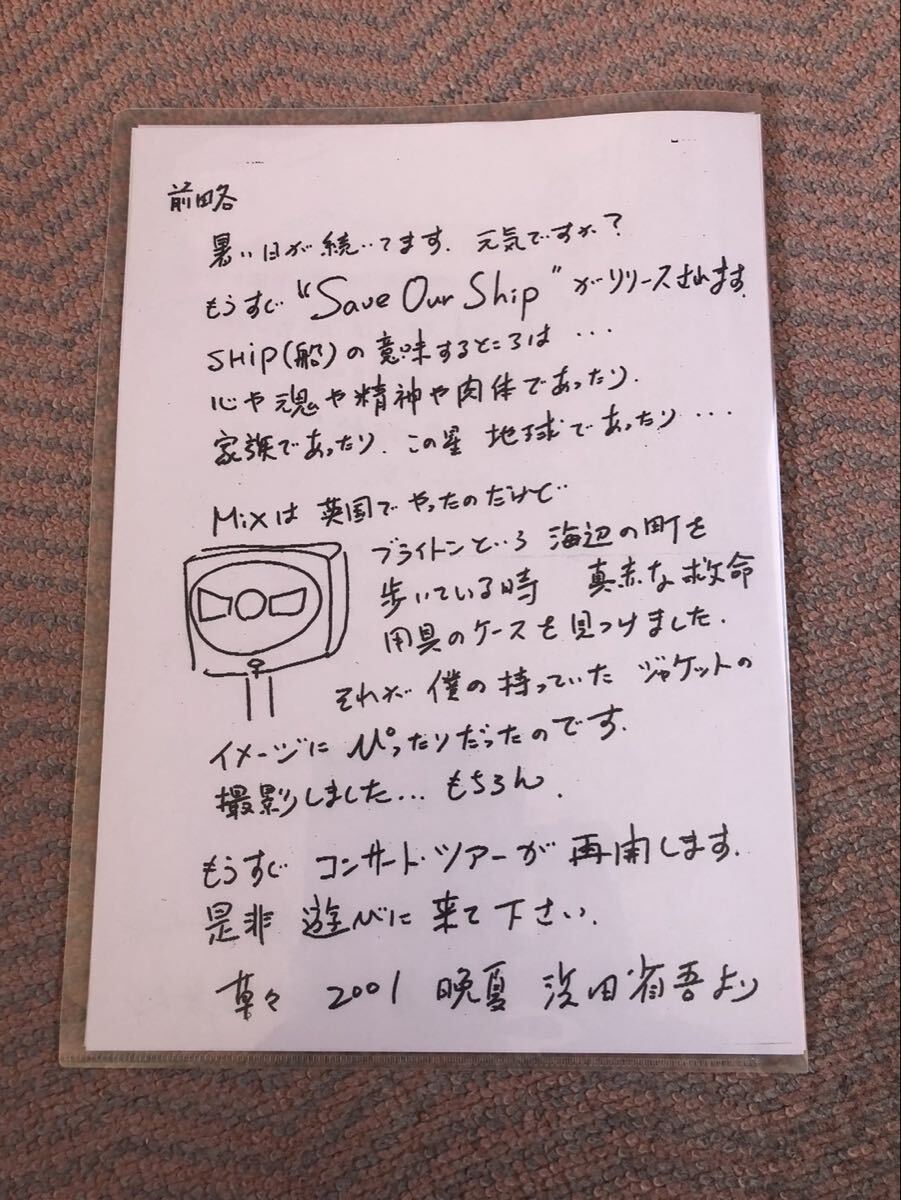 前略
暑い日が続いてます. 元気ですか?
もうすぐ "Save Our Ship" がリリースされます.
SHiP(船)の意味するところは...
心や魂や精神や肉体であったり.
家族であったり. この星 地球であったり...
Mixは 英国で やったのだけど
ブライトンという 海辺の町を
歩いている時 真赤な救命
用具のケースを見つけました.
それが 僕の持っていた ジャケットの
イメージに ぴったりだったのです.
撮影しました... もちろん.
もうすぐ コンサートツアーが 再開します.
是非 遊びに来て下さい.
草々 2001 晩夏 浜田省吾より